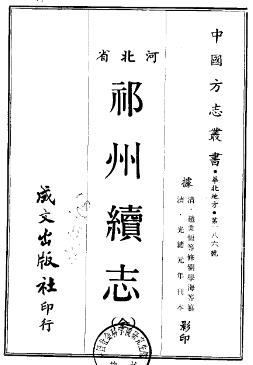 中國方志叢書·華北地方·第一八六號
據清·趙秉恆等修劉學海等纂
清·光緒元年刊本影印
河北省
祁州續志
(全)
成文出版社印行